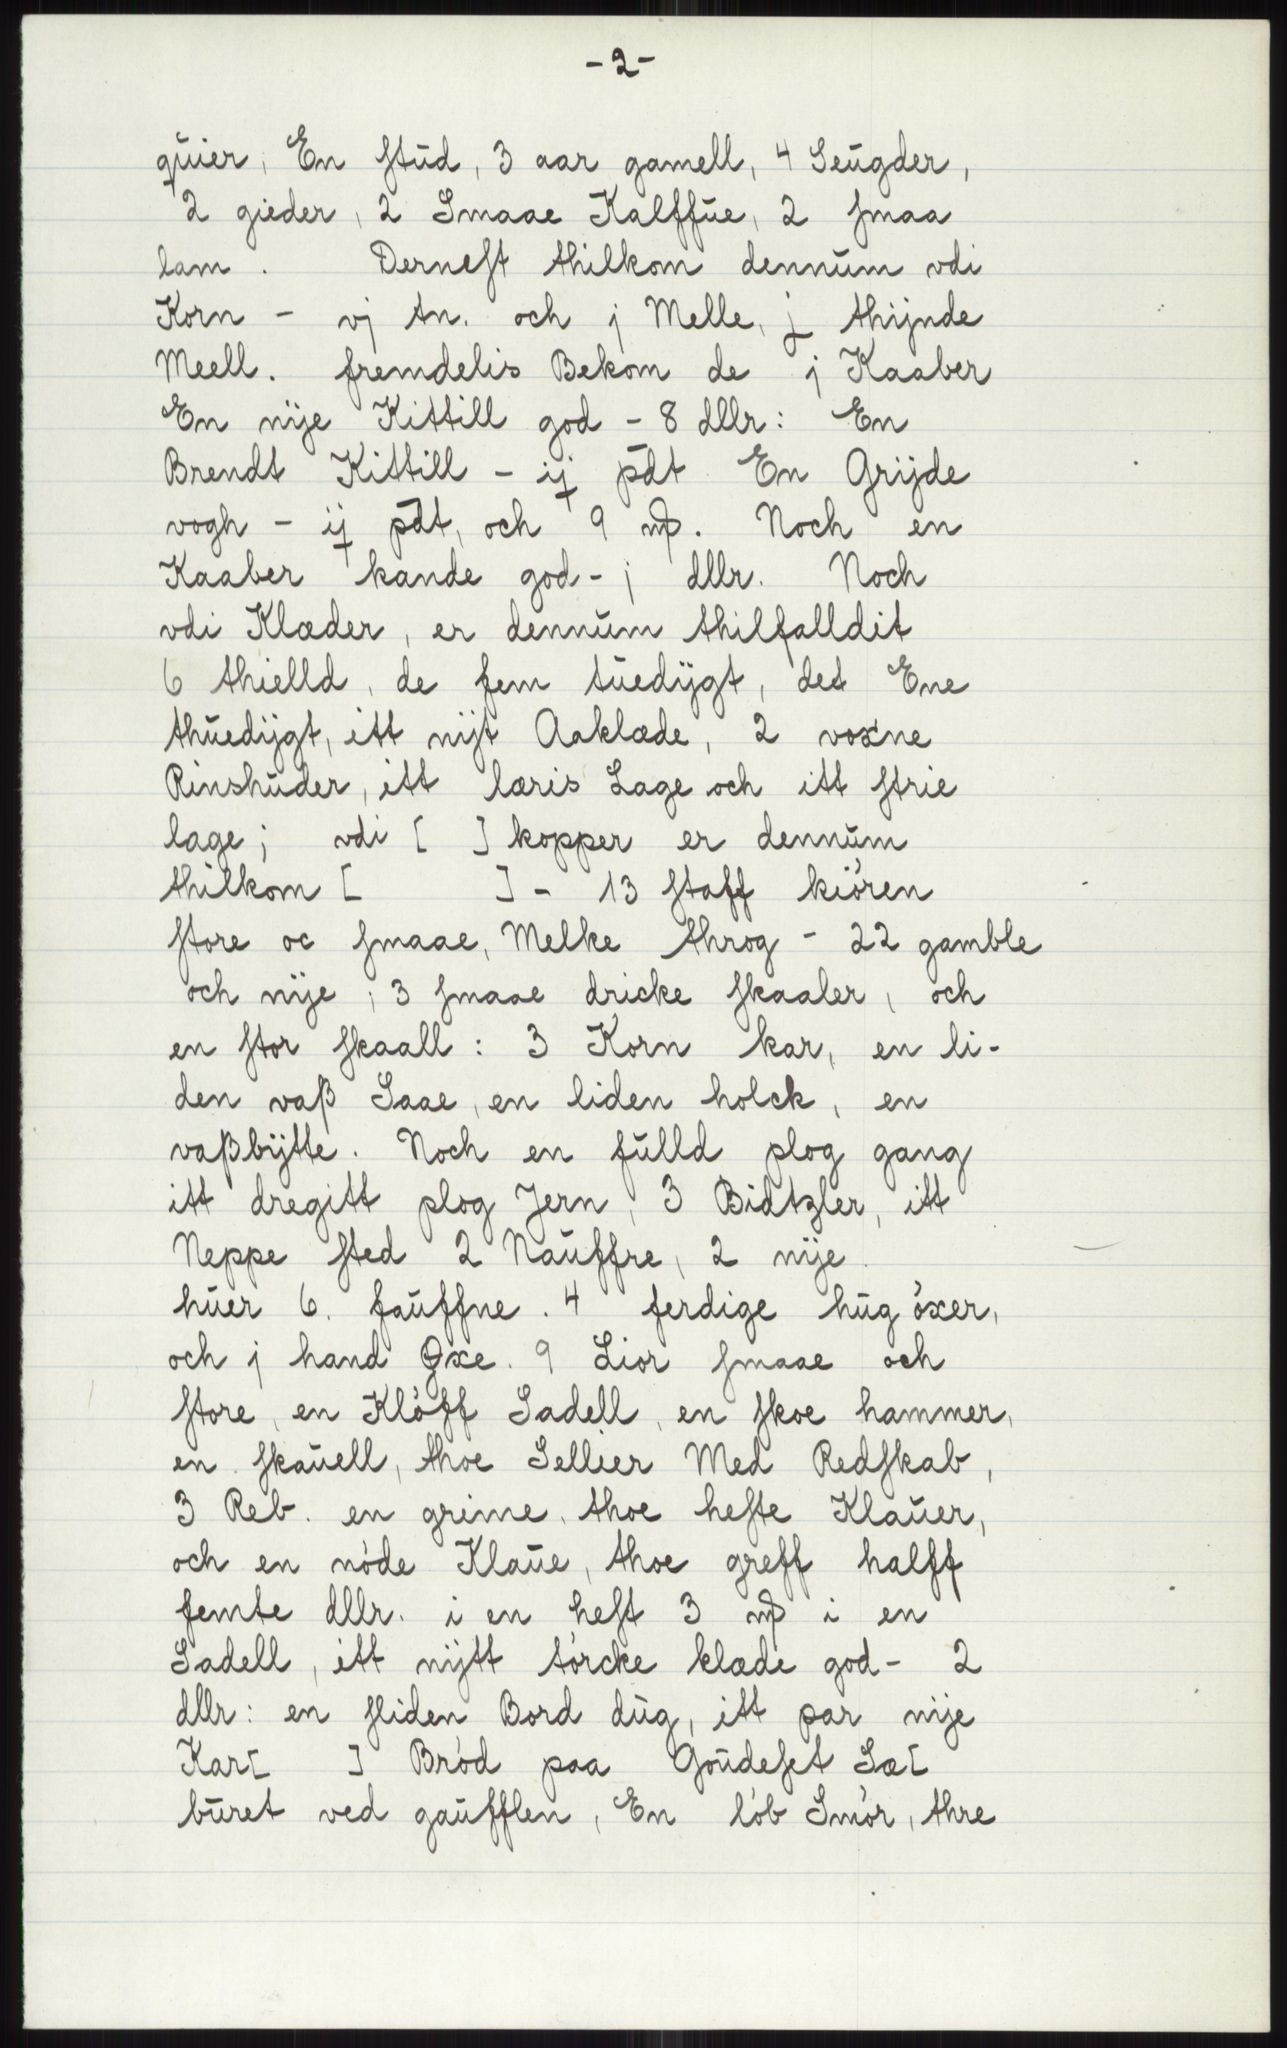 - 2 -
quier, En stud, 3 aar gamell, 4 Seugder,
2 gieder, 2 Smaae Kalffue, 2 smaa
lam. Dernest thilkom dennum vdi
Korn - vj tn. och j Melle, j thijnde
Meell. fremdelis Bekom de j Kaaber
En nije Kittill god - 8 dllr: En
Brendt Kittill - ij pdt En Grijde
vogh - ij pdt, och 9 mp. Noch en
Kaaber kande god - j dllr. Noch
vdi Klæder, er dennum thilfalldit
6 thielld, de fem tuedijgt, det Ene
thuedijgt, itt nijt Aaklæde, 2 voxne
Rinshuder, itt læris Lage och itt strie
lage; vdi [ ] kopper er dennum
thilkom [ ] - 13 staff kiören
store oc smaae, Melke throg - 22 gamble
och nije, 3 smaae dricke skaaler, och
en stor skaall: 3 Korn kar, en li-
den vaß Saae, en liden holck, en
vaßbijtte. Noch en fulld plog gang
itt dregitt plog Jern, 3 Bidtzler, itt
Neppe sted 2 Nauffre, 2 nije
huer 6. fauffne. 4 ferdige hug öxer,
och j hand Øxe. 9 Lior smaae och
store, en Klöff Sadell, en skoe hammer,
en skauell, thoe Sellier Med Redskab,
3 Reb. en grime, thoe heste Klauer,
och en nöde Klaue, thoe greff halff
femte dllr. i en hest 3 mp i en
Sadell, itt nijtt törcke klæde god - 2
dllr: en sliden Bord dug, itt par nije
Kar[ ] Bröd paa Goudeset Sæ[
buret ved gaufflen, En löb Smör, thre